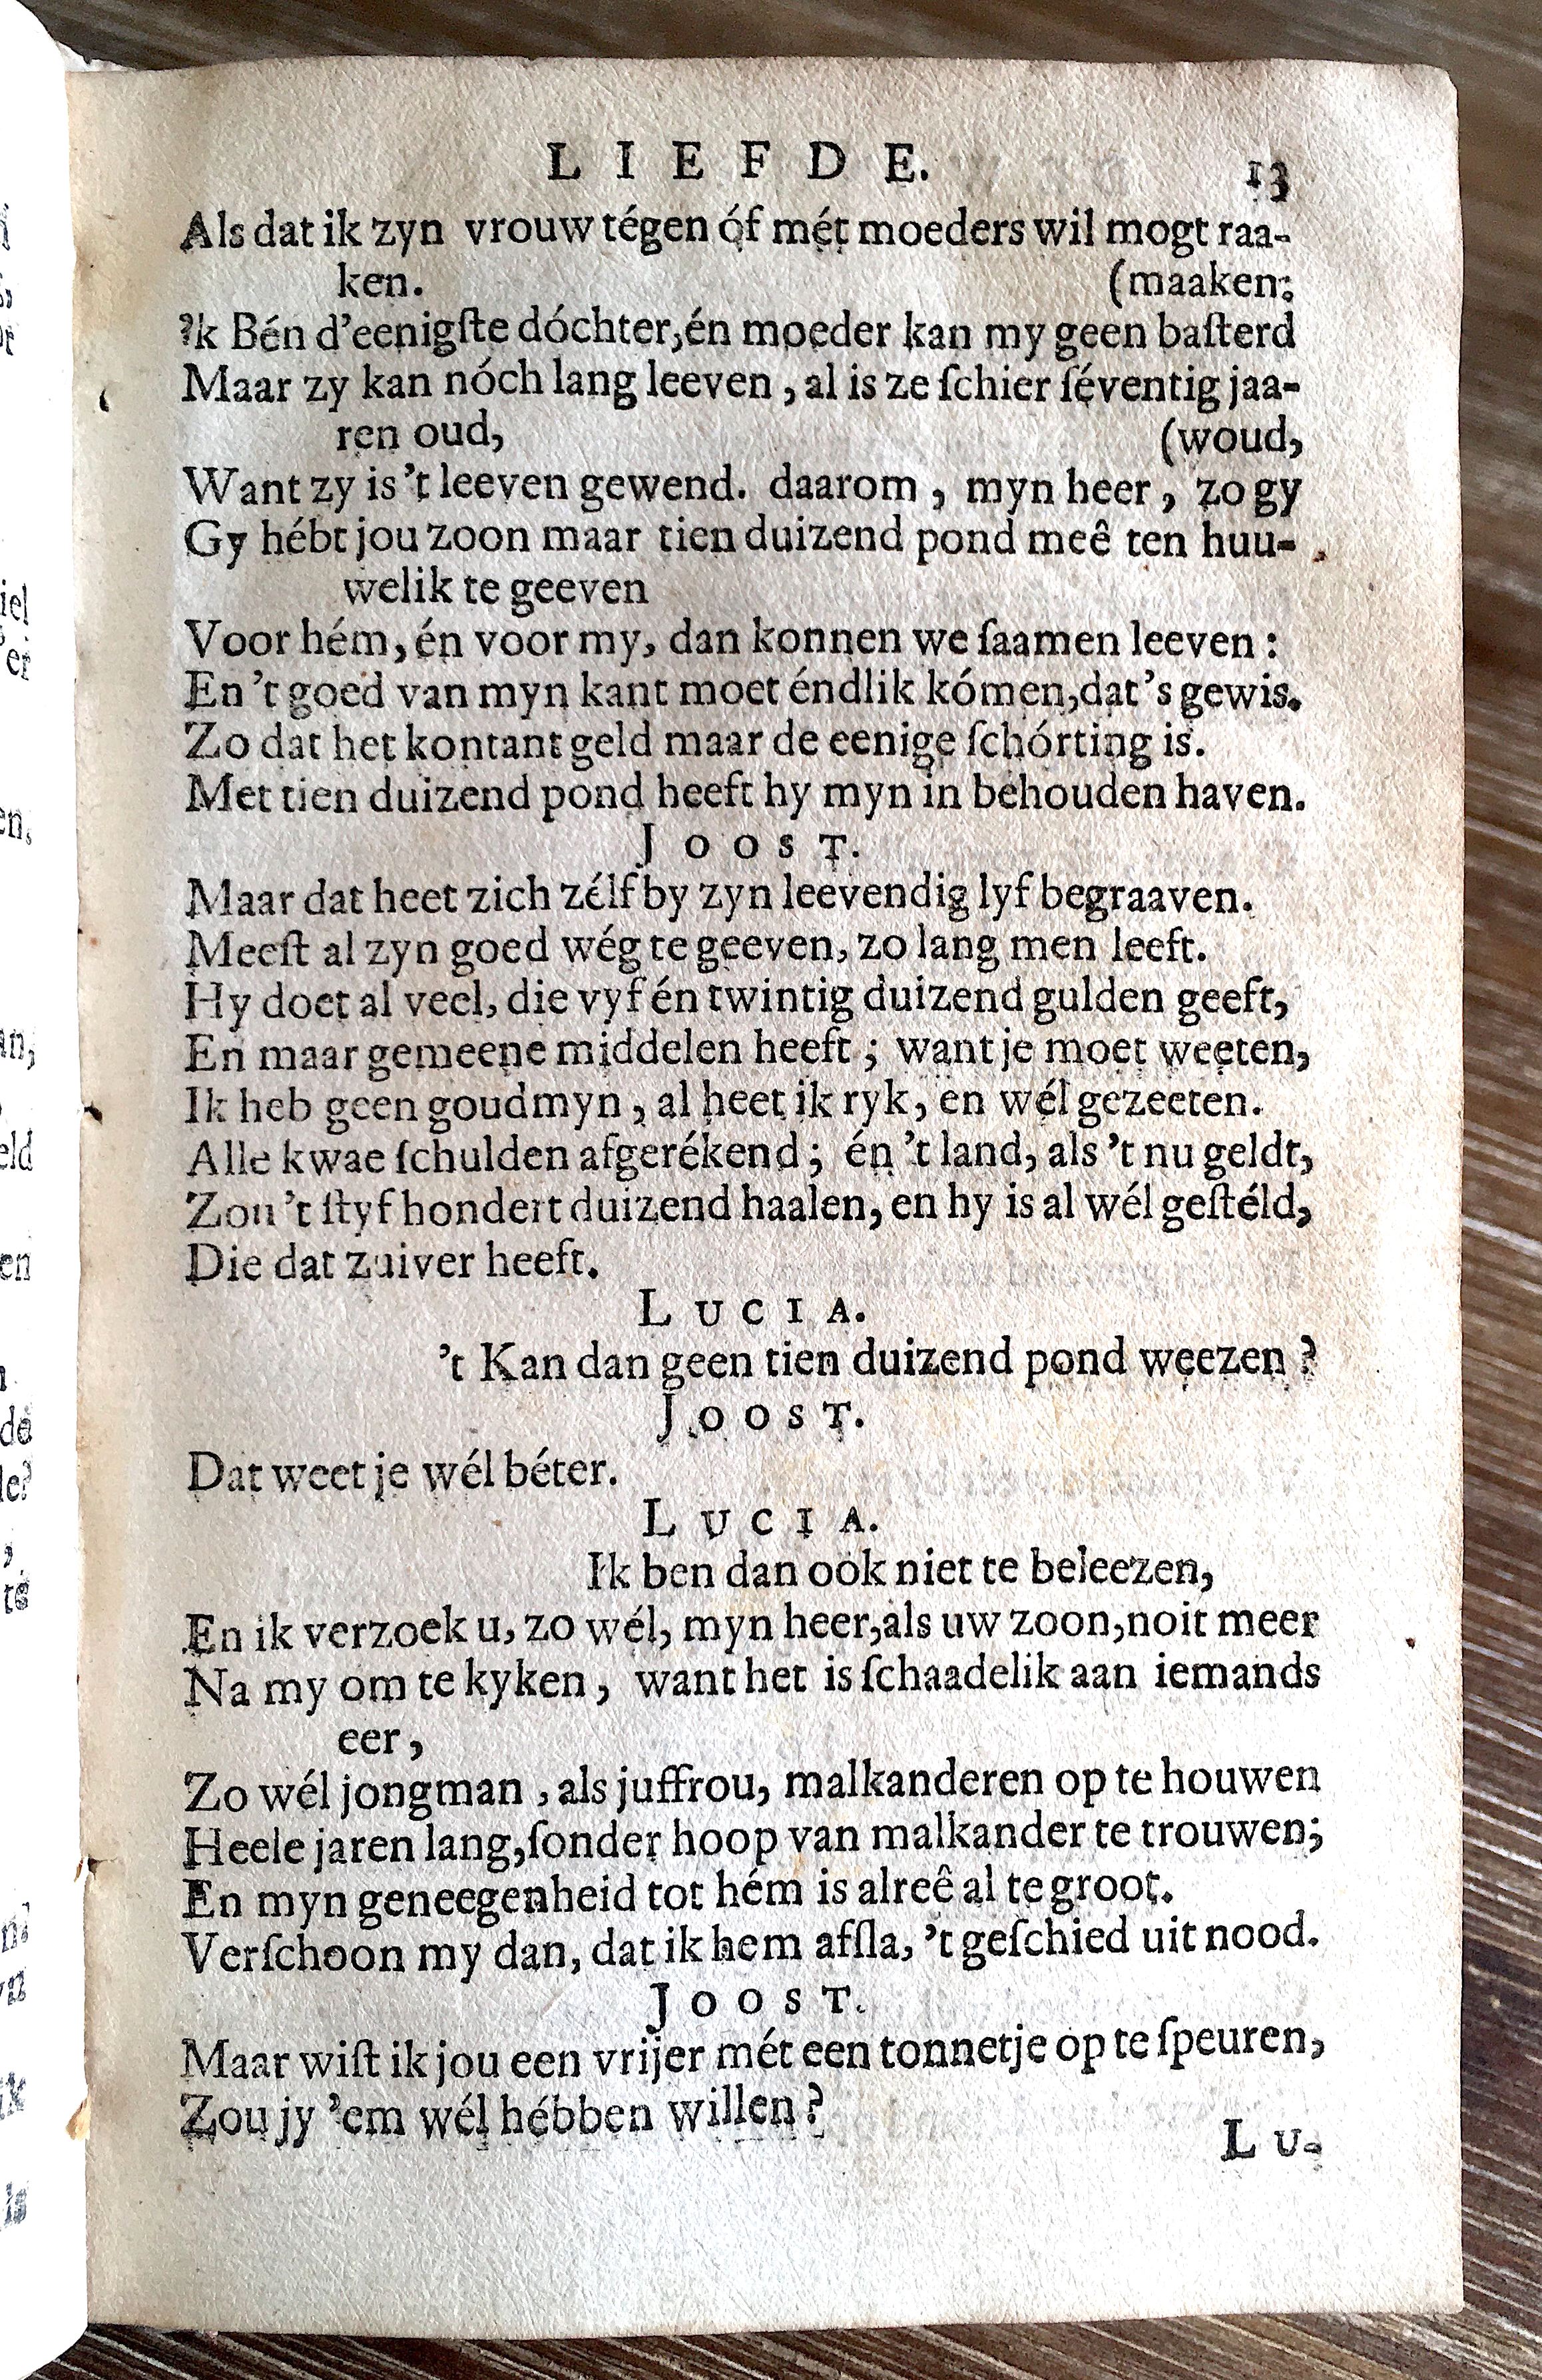 LIEFDE. 13
Als dat ik zyn vrouw tégen óf mét moeders wil mogt raa-
ken. (maaken;
'k Bén d'eenigſte dóchter, én moeder kan my geen baſterd
Maar zy kan nóch lang leeven, al is ze ſchier ſéventig jaa-
ren oud, (woud,
Want zy is 't leeven gewend. daarom, myn heer, zo gy
Gy hébt jou zoon maar tien duizend pond meê ten huu-
welik te geeven
Voor hém, én voor my, dan konnen we ſaamen leeven:
En 't goed van myn kant moet éndlik kómen, dat's gewis.
Zo dat het kontant geld maar de eenige ſchórting is.
Met tien duizend pond heeft hy myn in behouden haven.
JOOST.
Maar dat heet zich zélf by zyn leevendig lyf begraaven.
Meeſt al zyn goed wég te geeven, zo lang men leeft.
Hy doet al veel, die vyf én twintig duizend gulden geeft,
En maar gemeene middelen heeft; want je moet weeten,
Ik heb geen goudmyn, al heet ik ryk, en wél gezeeten.
Alle kwae ſchulden afgerékend; én 't land, als 't nu geldt,
Zou 't ſtyf hondert duizend haalen, en hy is al wél geſtéld,
Die dat zuiver heeft.
LUCIA.
't Kan dan geen tien duizend pond weezen?
JOOST.
Dat weet je wél béter.
LUCIA.
Ik ben dan oòk niet te beleezen,
En ik verzoek u, zo wél, myn heer, als uw zoon, noit meer
Na my om te kyken, want het is ſchaadelik aan iemands
eer,
Zo wél jongman, als juffrou, malkanderen op te houwen
Heele jaren lang, ſonder hoop van malkander te trouwen;
En myn geneegenheid tot hém is alreê al te groot.
Verſchoon my dan, dat ik hem afſla, 't geſchied uit nood.
JOOST.
Maar wiſt ik jou een vrijer mét een tonnetje op te ſpeuren,
Zou jy 'em wél hébben willen?
LU-